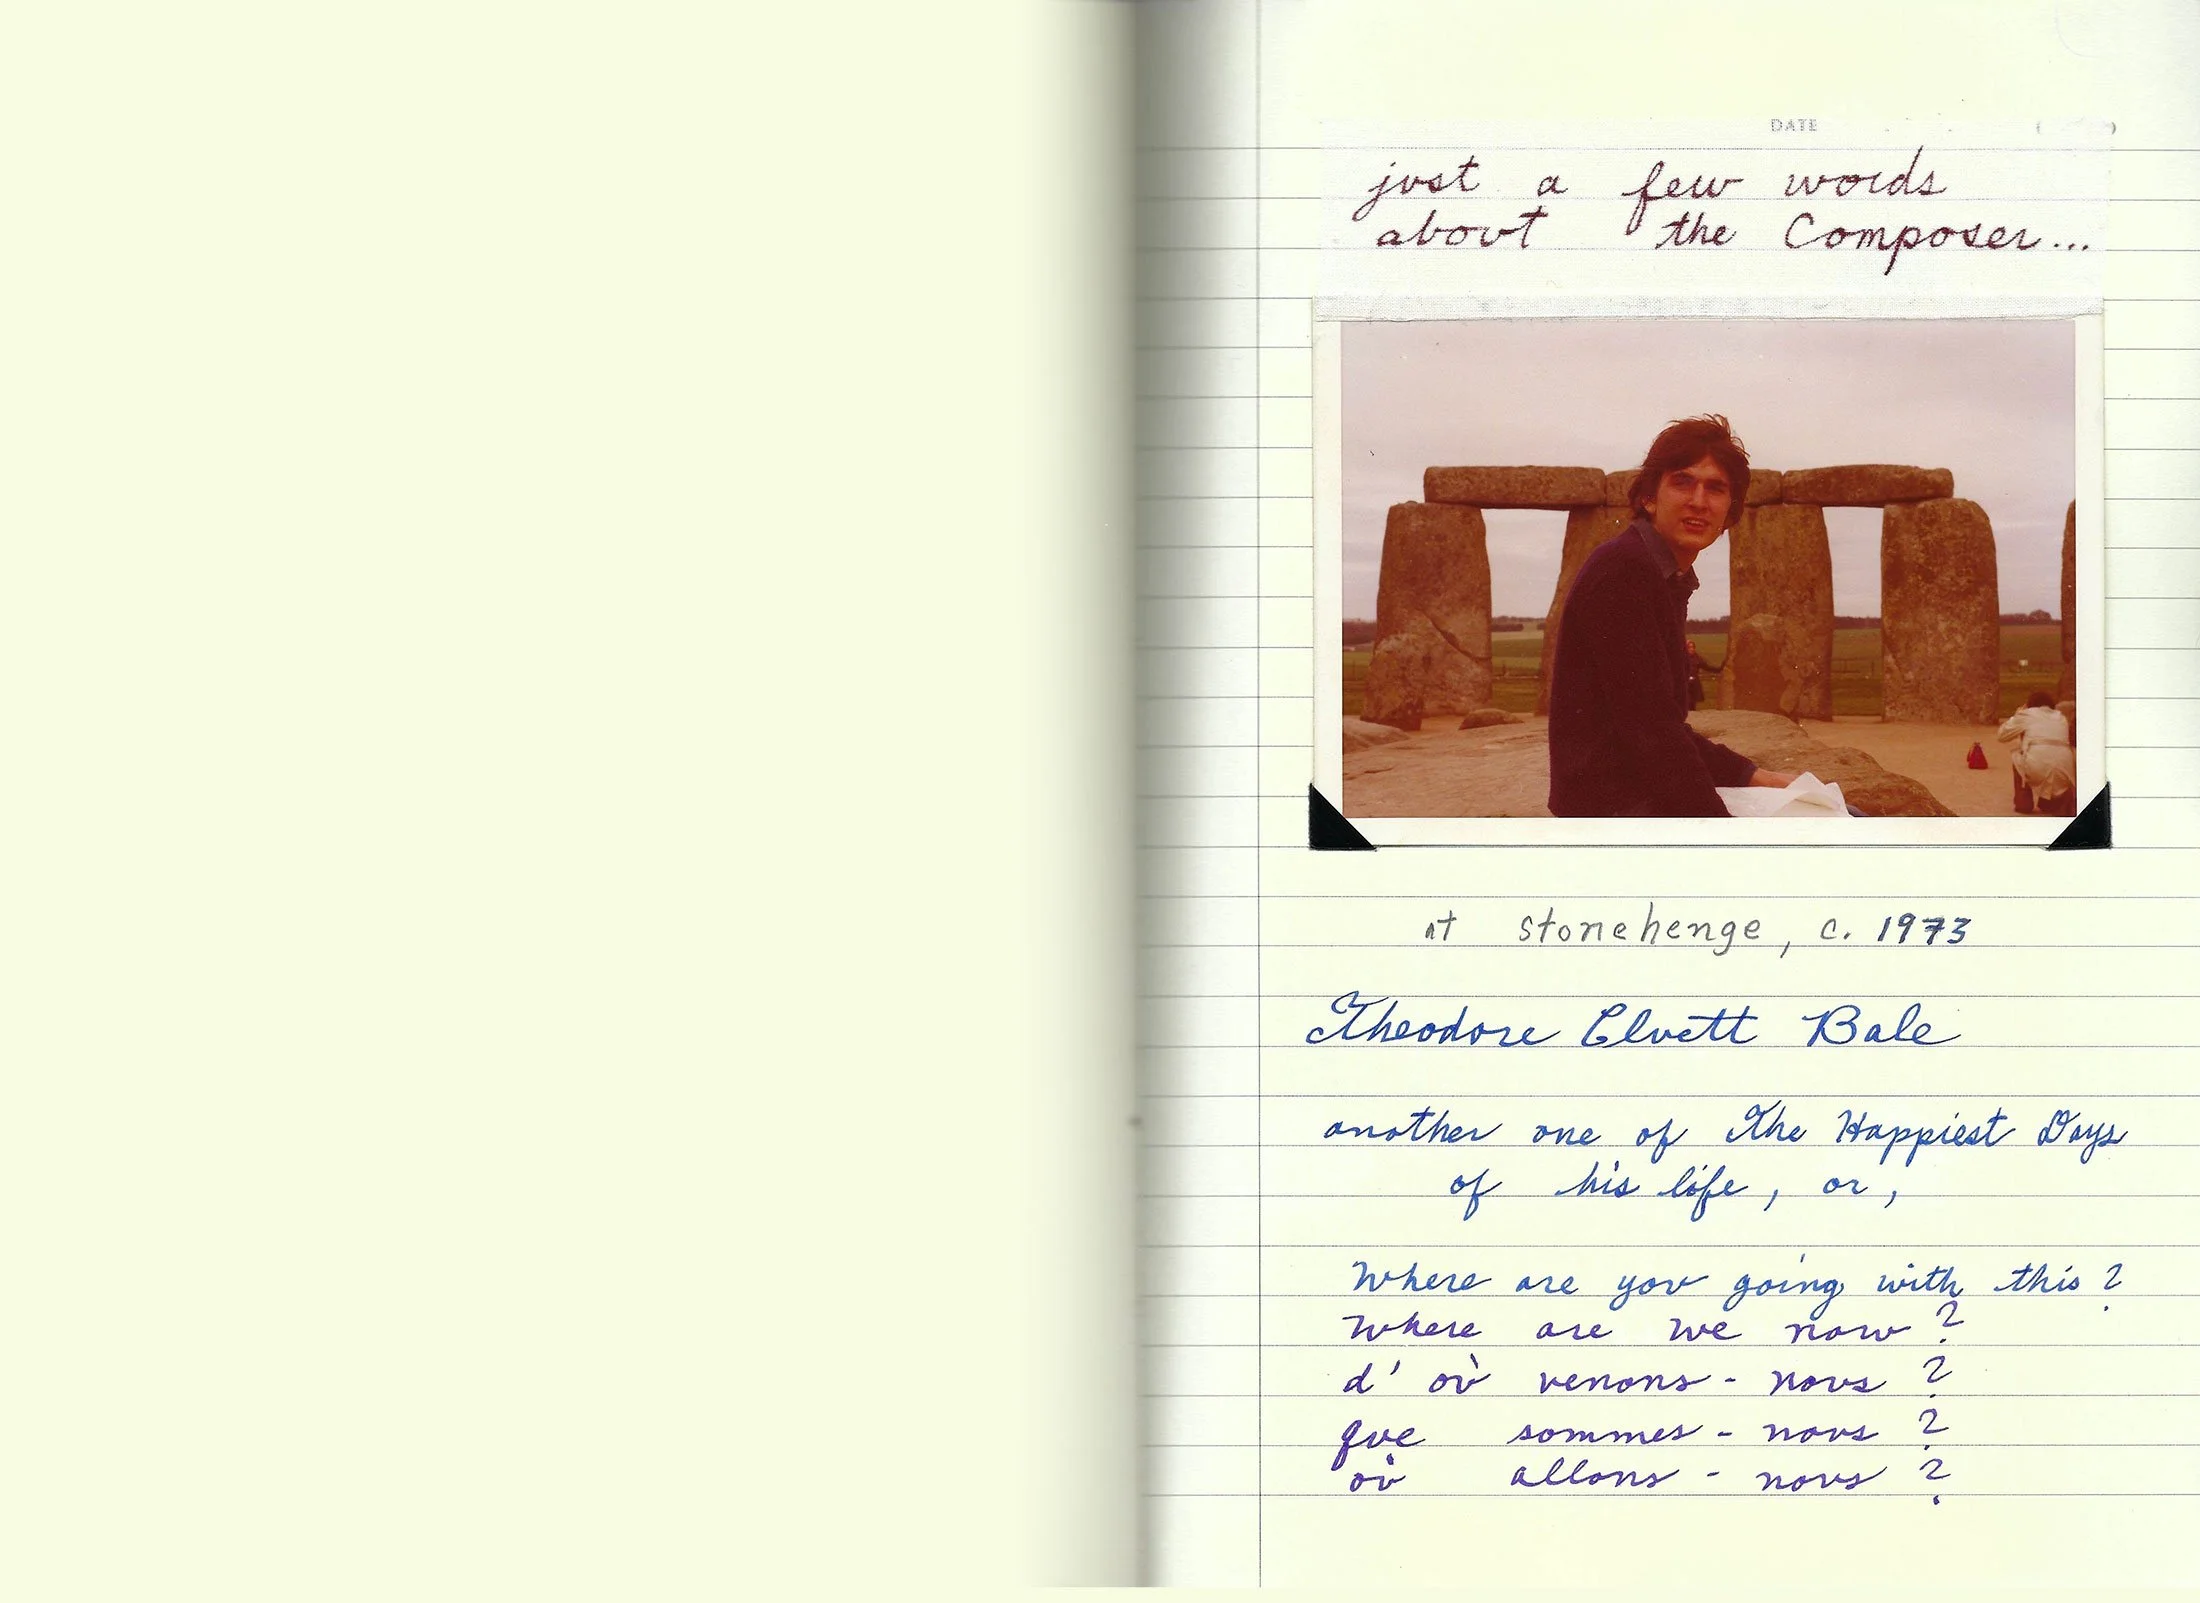 DATE
just a few words
about the Composer...
at stonehenge, c. 1973
Theodore Elvett Bale
another one of The Happiest Days
of his life, or,
Where are you going with this?
Where are we now?
d'où venons-nous?
que sommes-nous?
où allons-nous?